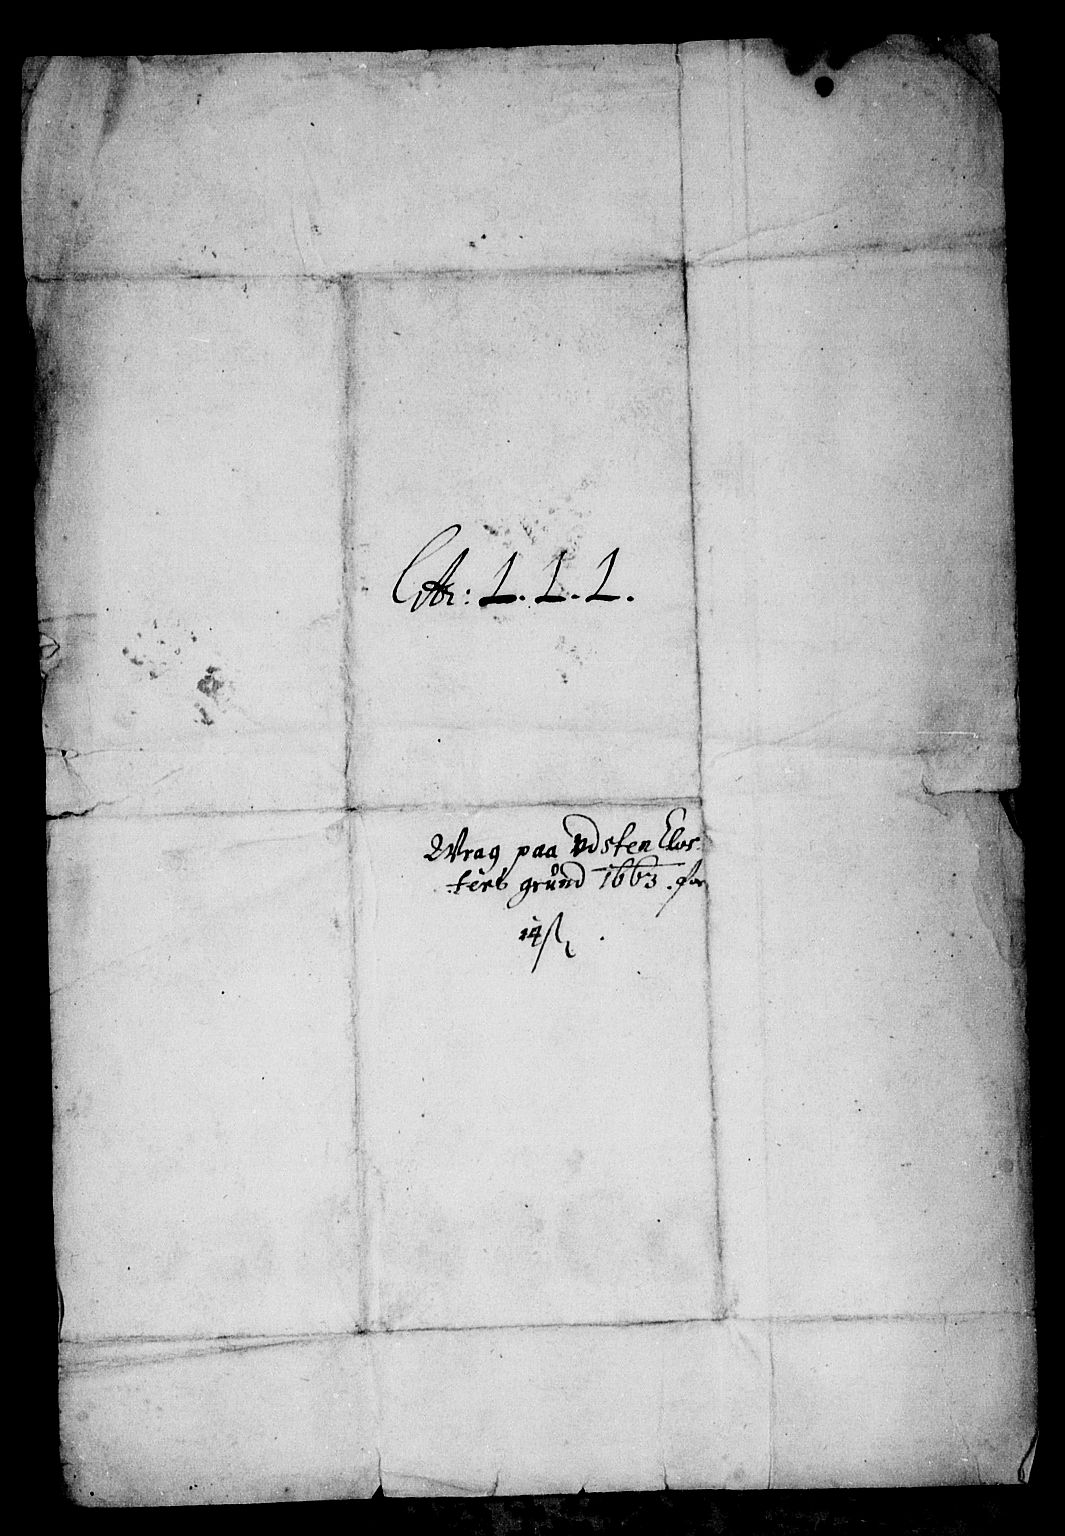 Litr: L. L. L.
Wrag paa Udsten Clos-
ters grund 1663. for
14 ß